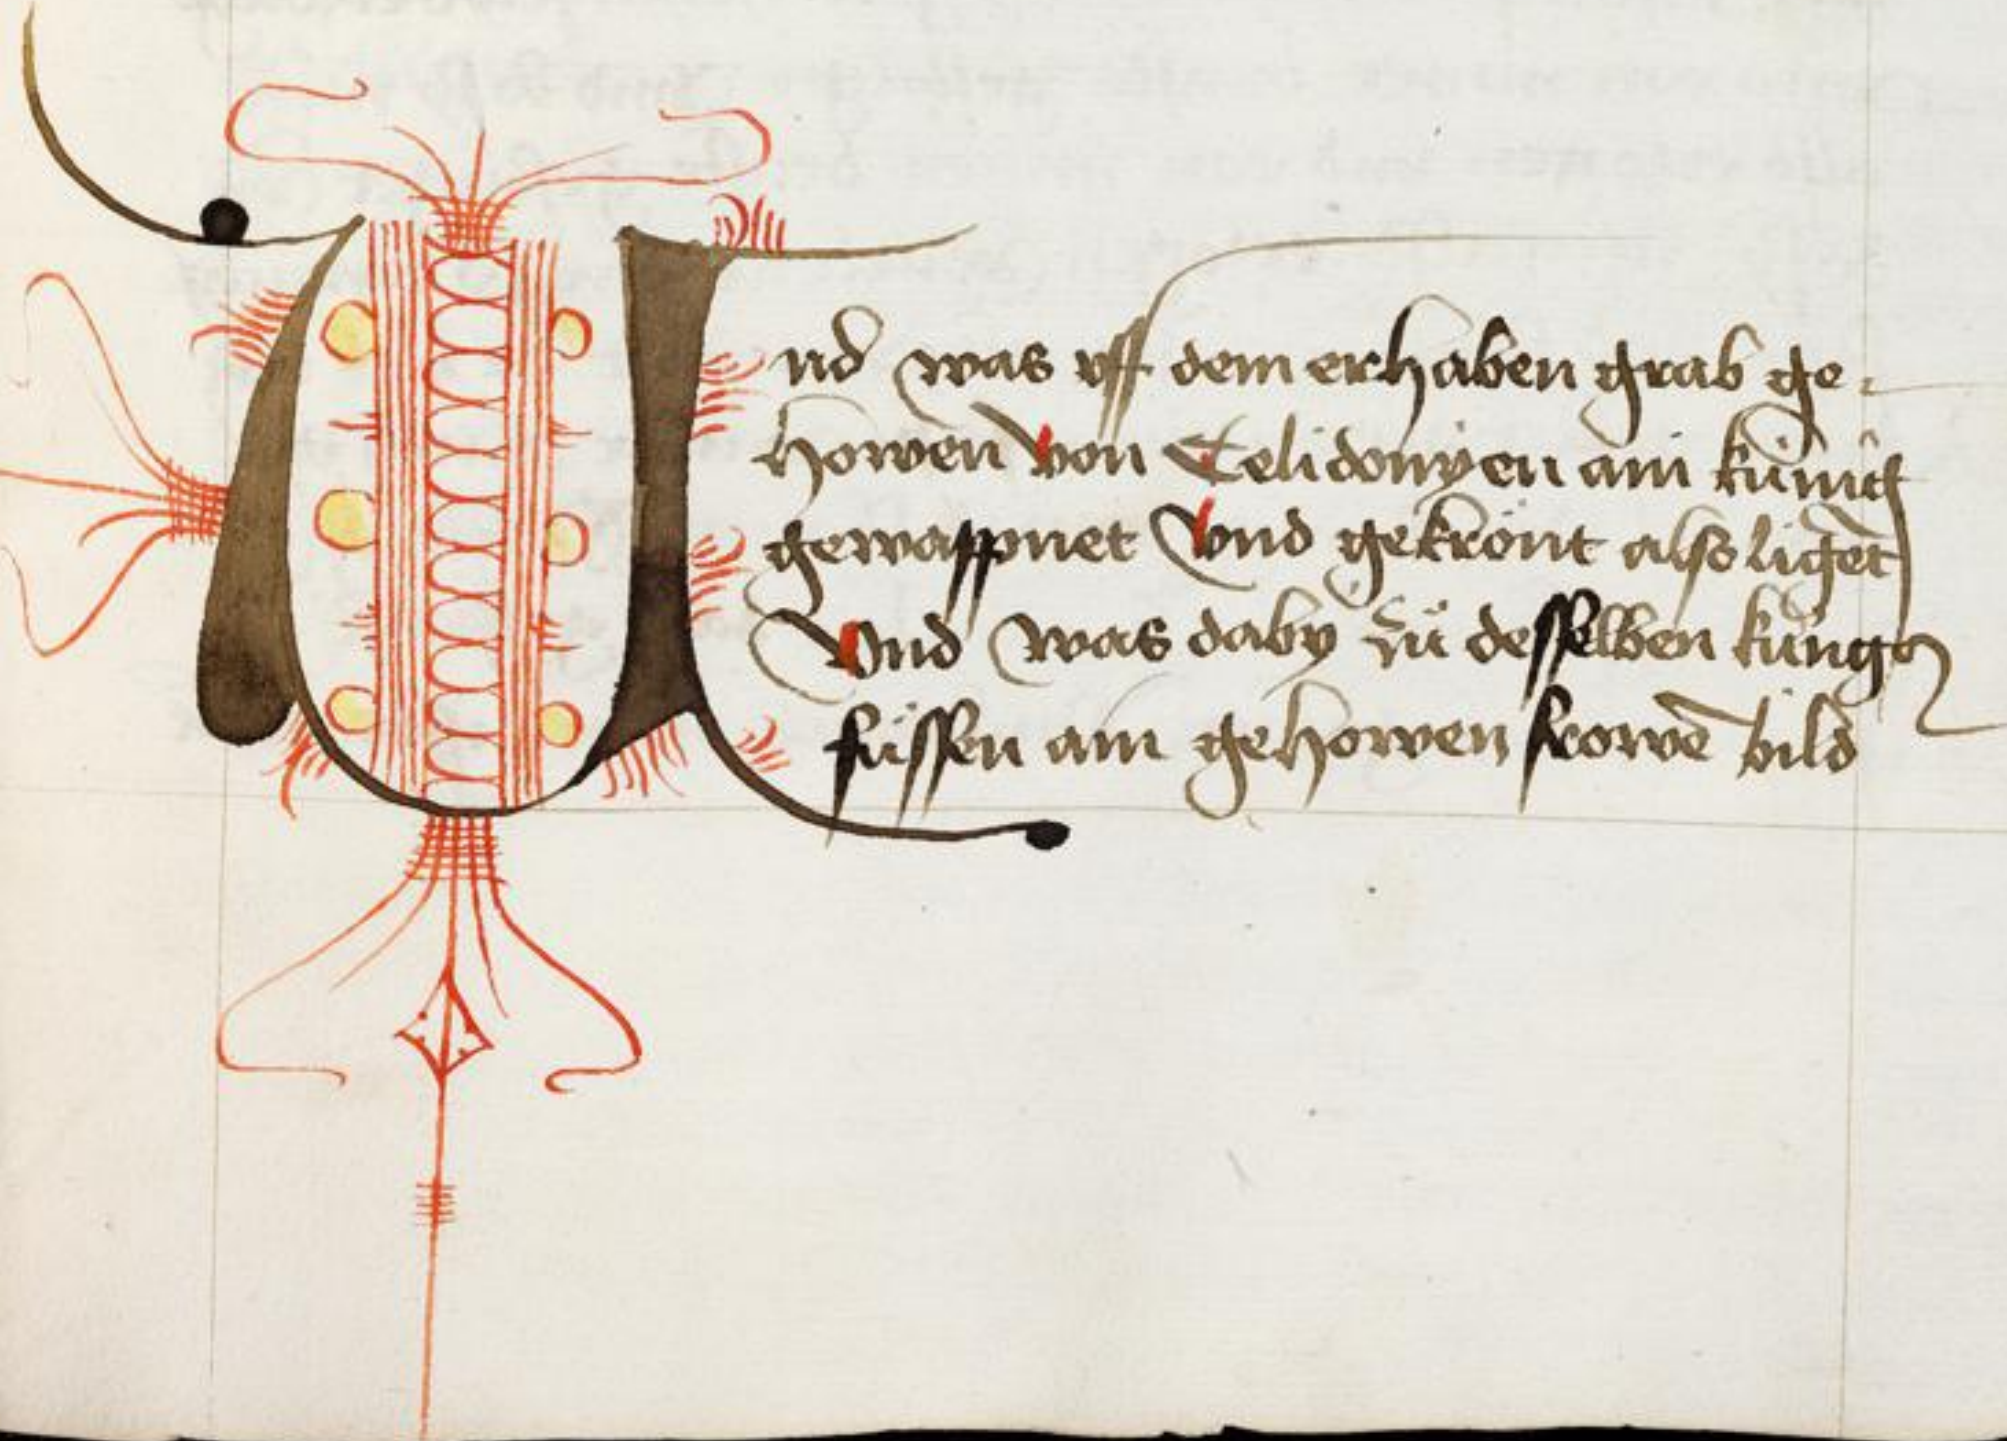 Und was vff dem erhaben grab ge-
howen von Celidonyen ain kúnig
gewappnet Vnd gekrönt also ligēt
Vnd was daby zů desselben kúngs
füssen ain gehowen frowē bild